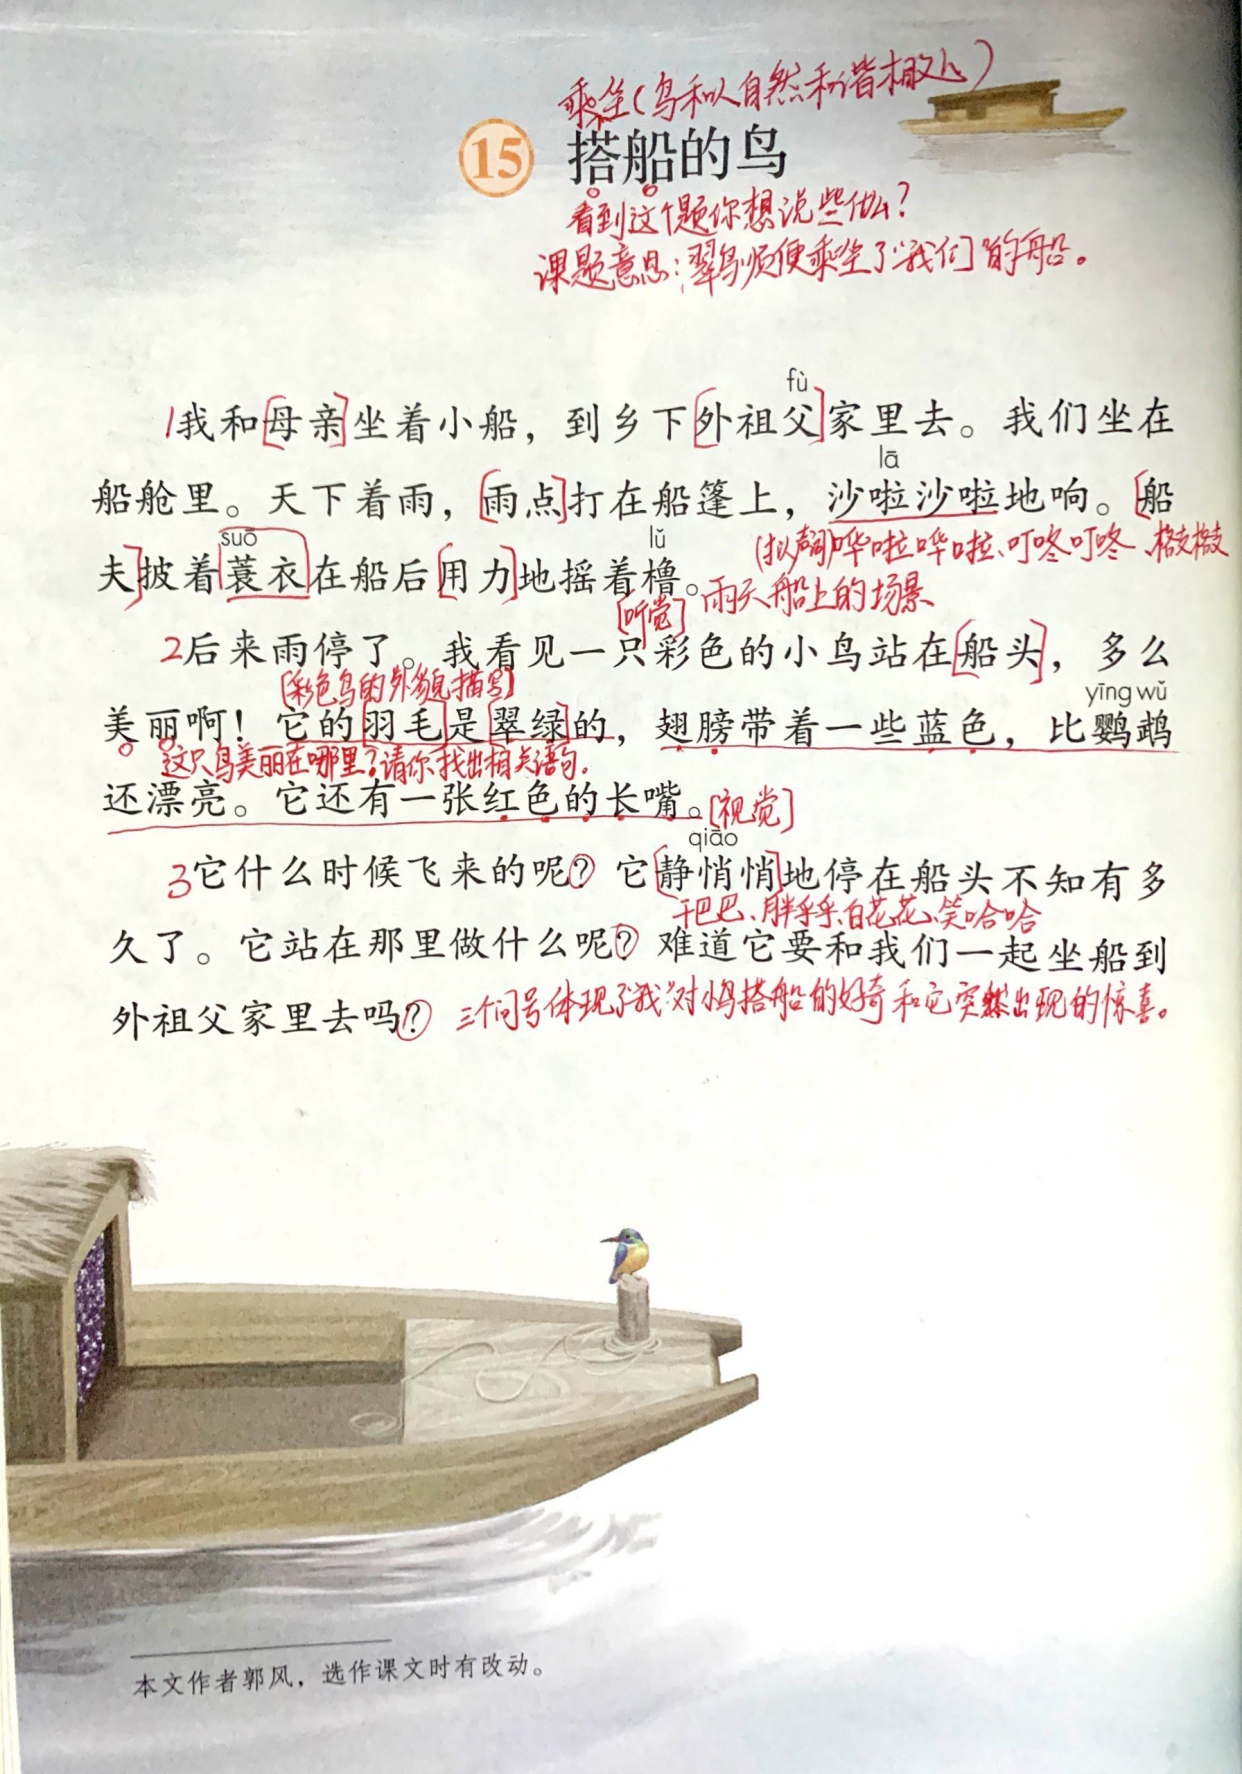 乘坐(鸟和人自然和谐相处)
15 搭船的鸟
看到这个题你想说些什么?
课题意思:翠鸟顺便乘坐了“我们”的船。
fù
1我和[母亲]坐着小船，到乡下[外祖父]家里去。我们坐在
lā
船舱里。天下着雨，[雨点]打在船篷上，沙啦沙啦地响。[船
suō lǔ
(拟声词)哗啦哗啦、叮咚叮咚、格支格支
夫]披着蓑衣在船后[用力]地摇着橹。
[听觉] 雨天船上的场景
2后来雨停了。我看见一只彩色的小鸟站在[船头]，多么
[彩色鸟的外貌描写]
yīng wǔ
美丽啊！它的[羽毛]是[翠绿]的，翅膀带着一些蓝色，比鹦鹉
这只鸟美丽在哪里?请你找出相关语句。
还漂亮。它还有一张红色的长嘴。[视觉]
qiāo
3它什么时候飞来的呢？它[静悄悄]地停在船头不知有多
干巴巴、胖乎乎、白花花、笑哈哈
久了。它站在那里做什么呢？难道它要和我们一起坐船到
外祖父家里去吗？ 三个问号体现了“我”对小鸟搭船的好奇和它突然出现的惊喜。
本文作者郭风，选作课文时有改动。